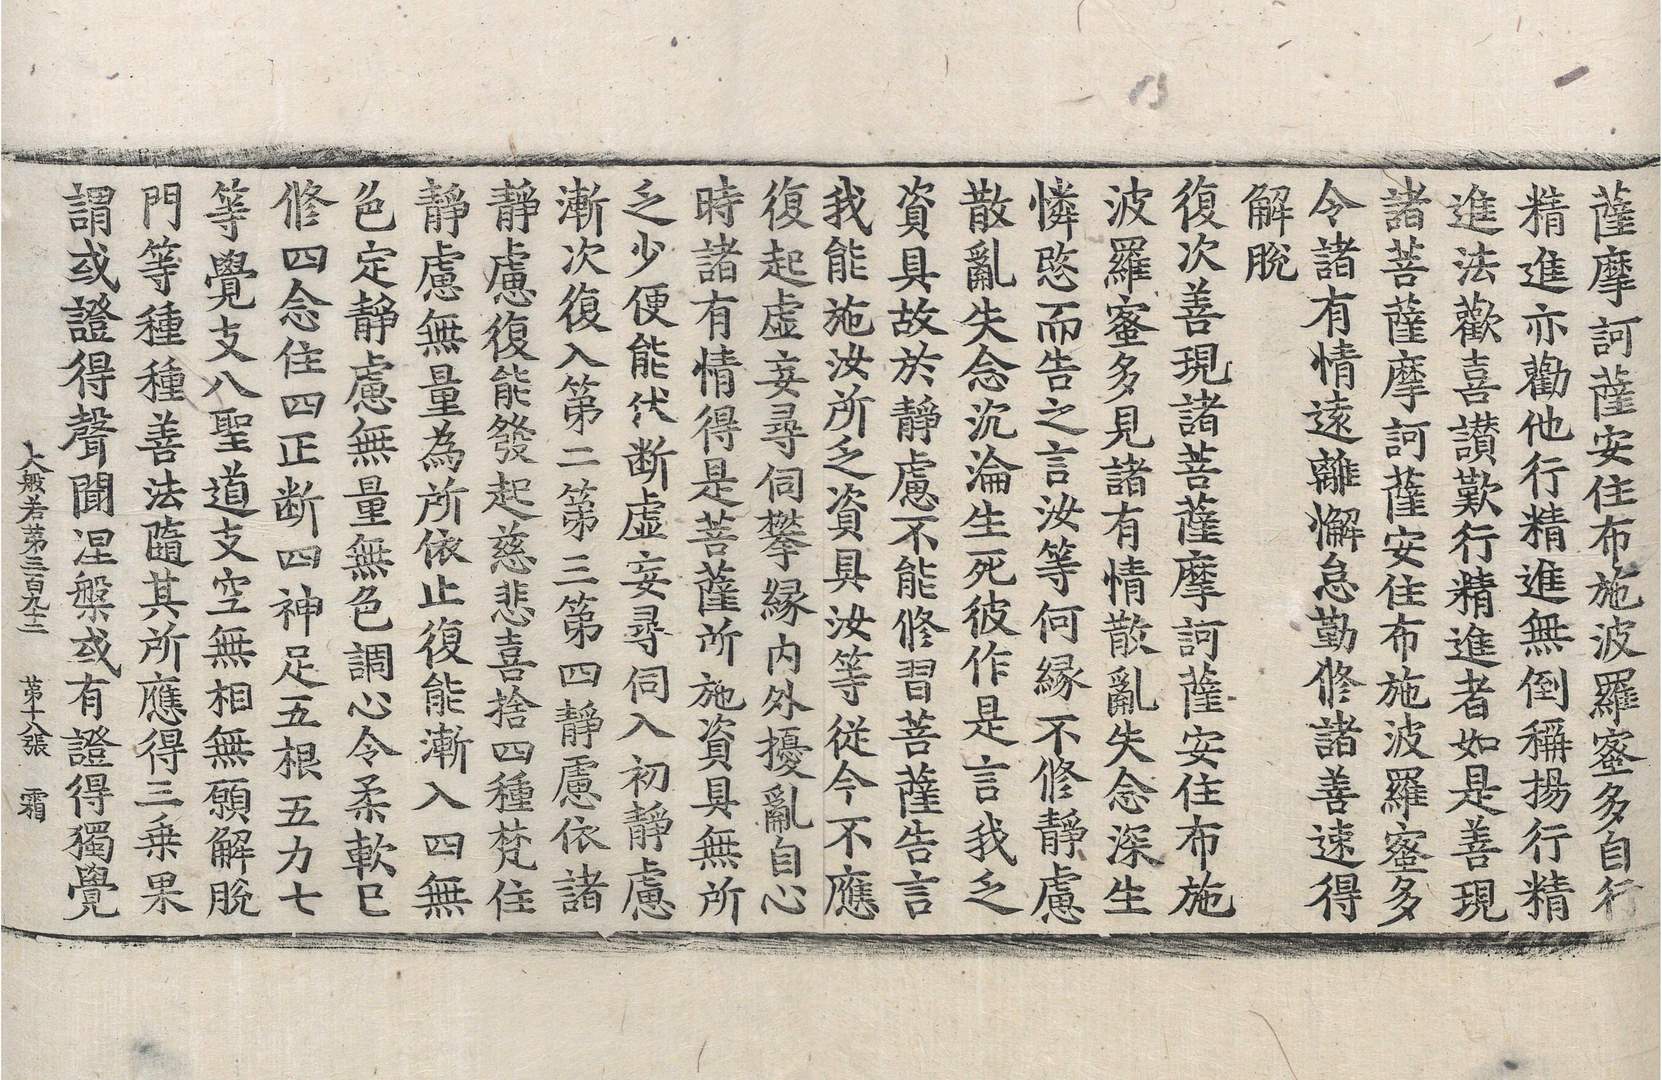 薩摩訶薩安住布施波羅蜜多自行
精進亦勸他行精進無倒稱揚行精
進法歡喜讃歎行精進者如是善現
諸菩薩摩訶薩安住布施波羅蜜多
令諸有情遠離懈怠勤修諸善速得
解脫
復次善現諸菩薩摩訶薩安住布施
波羅蜜多見諸有情散亂失念深生
憐愍而告之言汝等何緣不修靜慮
散亂失念沉淪生死彼作是言我乏
資具故於靜慮不能修習菩薩告言
我能施汝所乏資具汝等從今不應
復起虛妄尋伺攀緣內外擾亂自心
時諸有情得是菩薩所施資具無所
乏少便能伏斷虛妄尋伺入初靜慮
漸次復入第二第三第四靜慮依諸
靜慮復能發起慈悲喜捨四種梵住
靜慮無量為所依止復能漸入四無
色定靜慮無量無色調心令柔軟已
修四念住四正斷四神足五根五力七
等覺支八聖道支空無相無願解脫
門等種種善法隨其所應得三乘果
謂或證得聲聞涅槃或有證得獨覺
大般若第三百九十二 第十八張 霜